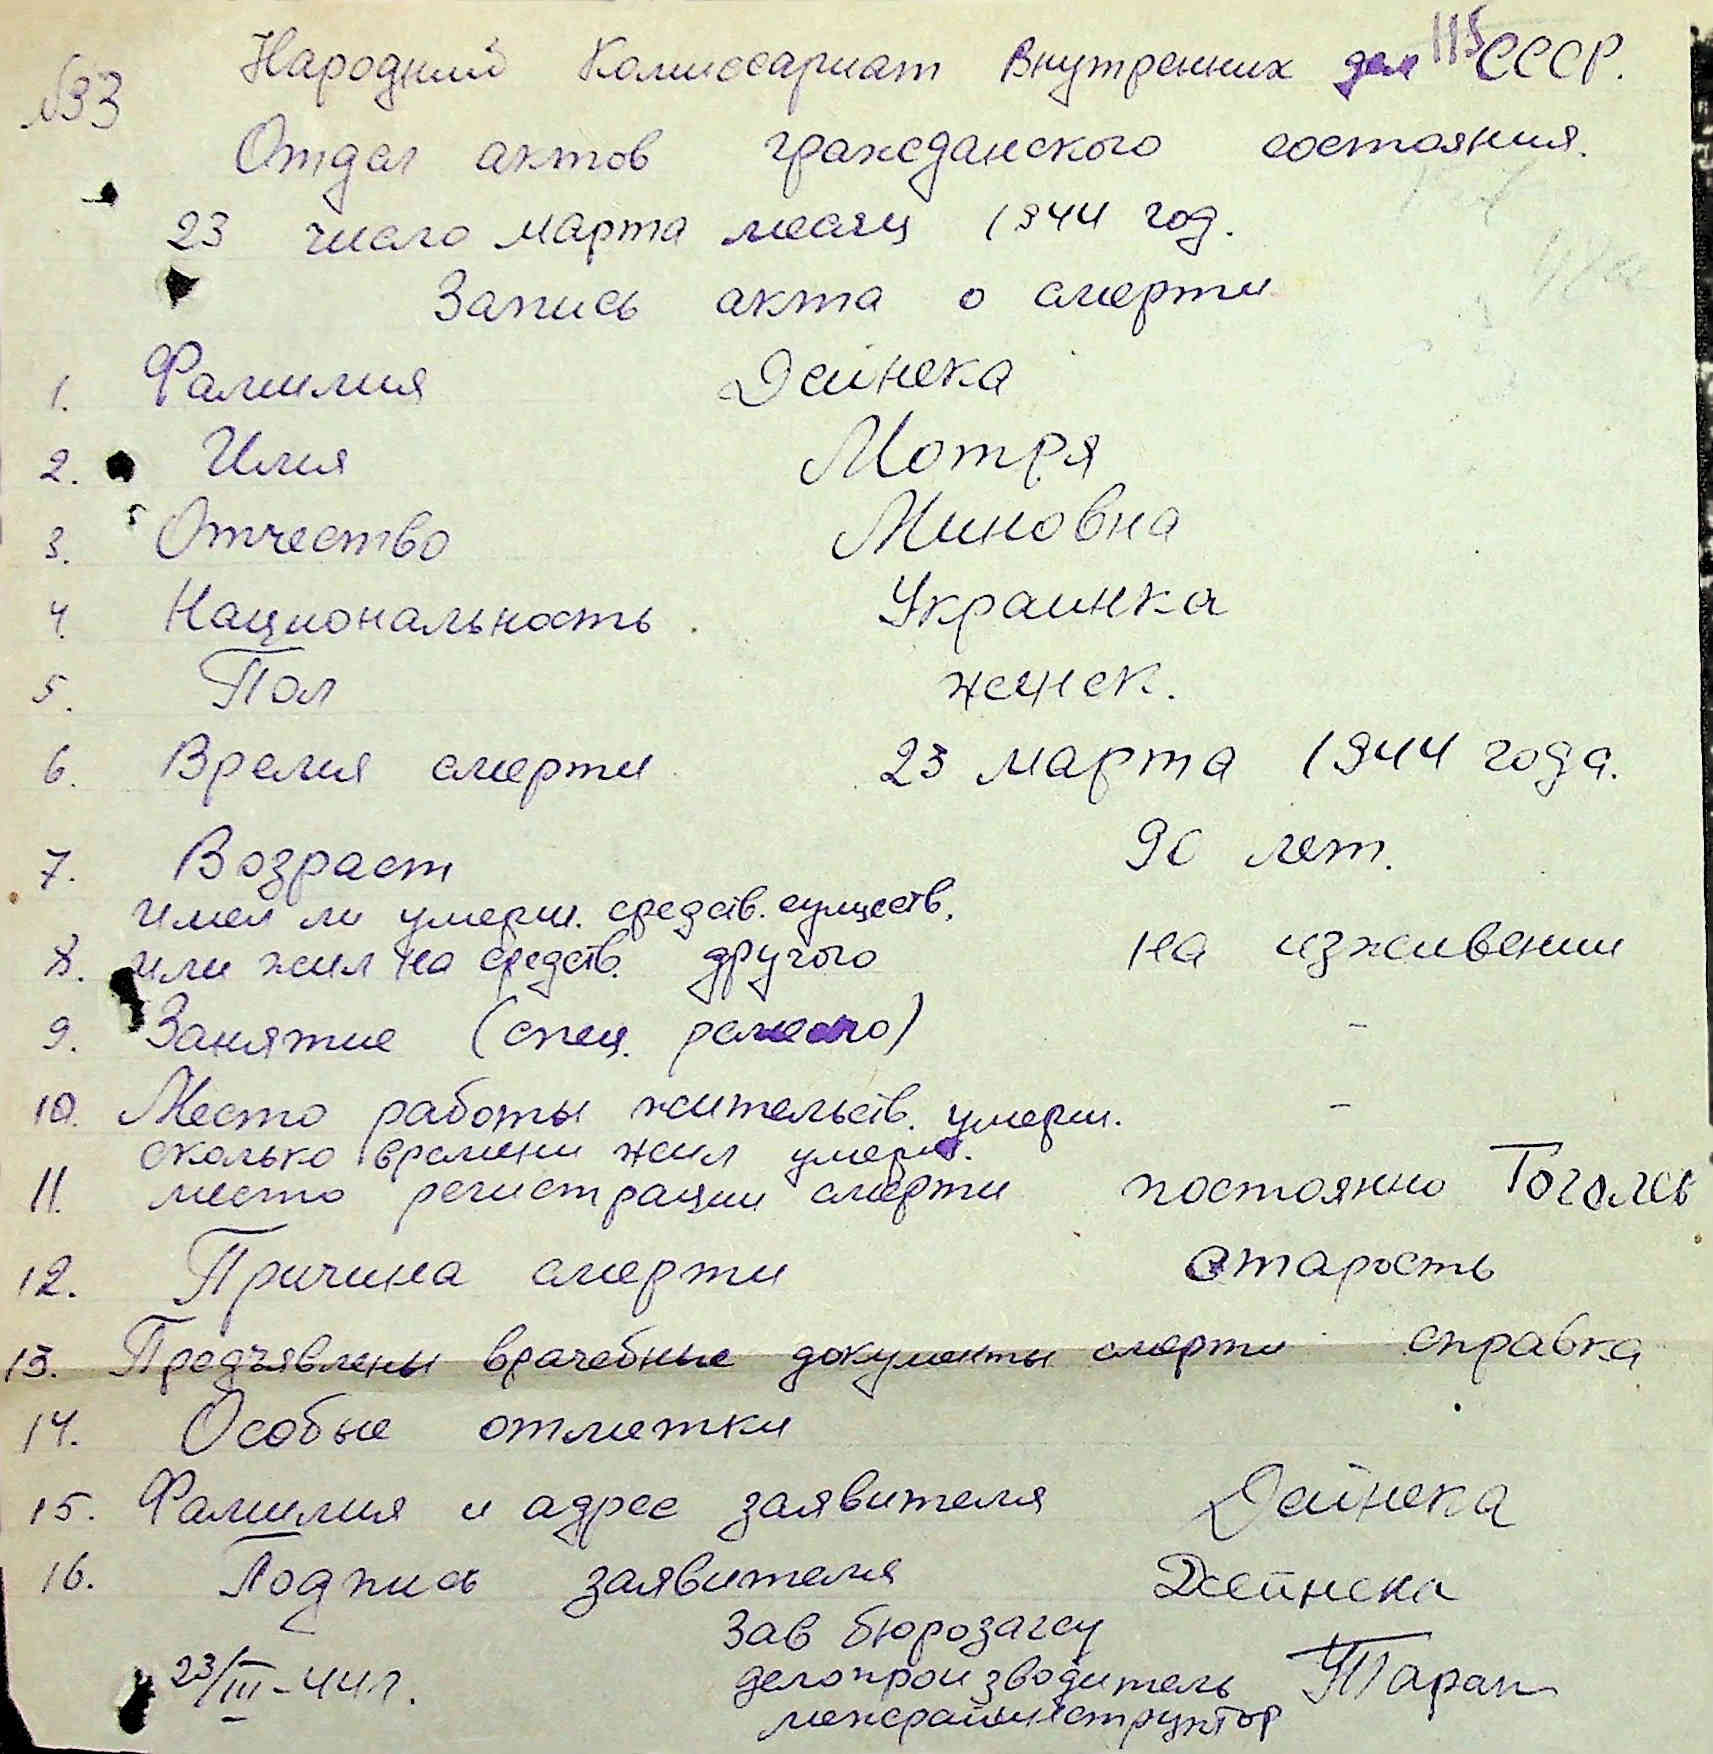 115
№33 Народний Комиссариат Внутренних дел СССР.
Отдел актов гражданского состояния.
23 число марта месяц 1944 год.
Запись акта о смерти
1. Фамилия Дейнека
2. Имя Мотря
3. Отчество Миновна
4. Национальность Украинка
5. Пол женск.
6. Время смерти 23 марта 1944 года.
7. Возраст 90 лет.
имел ли умерш. средств. существ.
8. или жил на средств. другого на изживении
9. Занятие (спец. ремесло) -
10. Место работы жительств. умерш. -
сколько времени жил умерш.
11. место регистрации смерти постоянно Гоголев
12. Причина смерти старость
13. Предъявлены врачебные документы смерти справка
14. Особые отметки
15. Фамилия и адрес заявителя Дейнека
16. Подпись заявителя Дейнека
Зав бюрозагсу
23/III-44г. делопроизводитель Таран
межрайинструктор